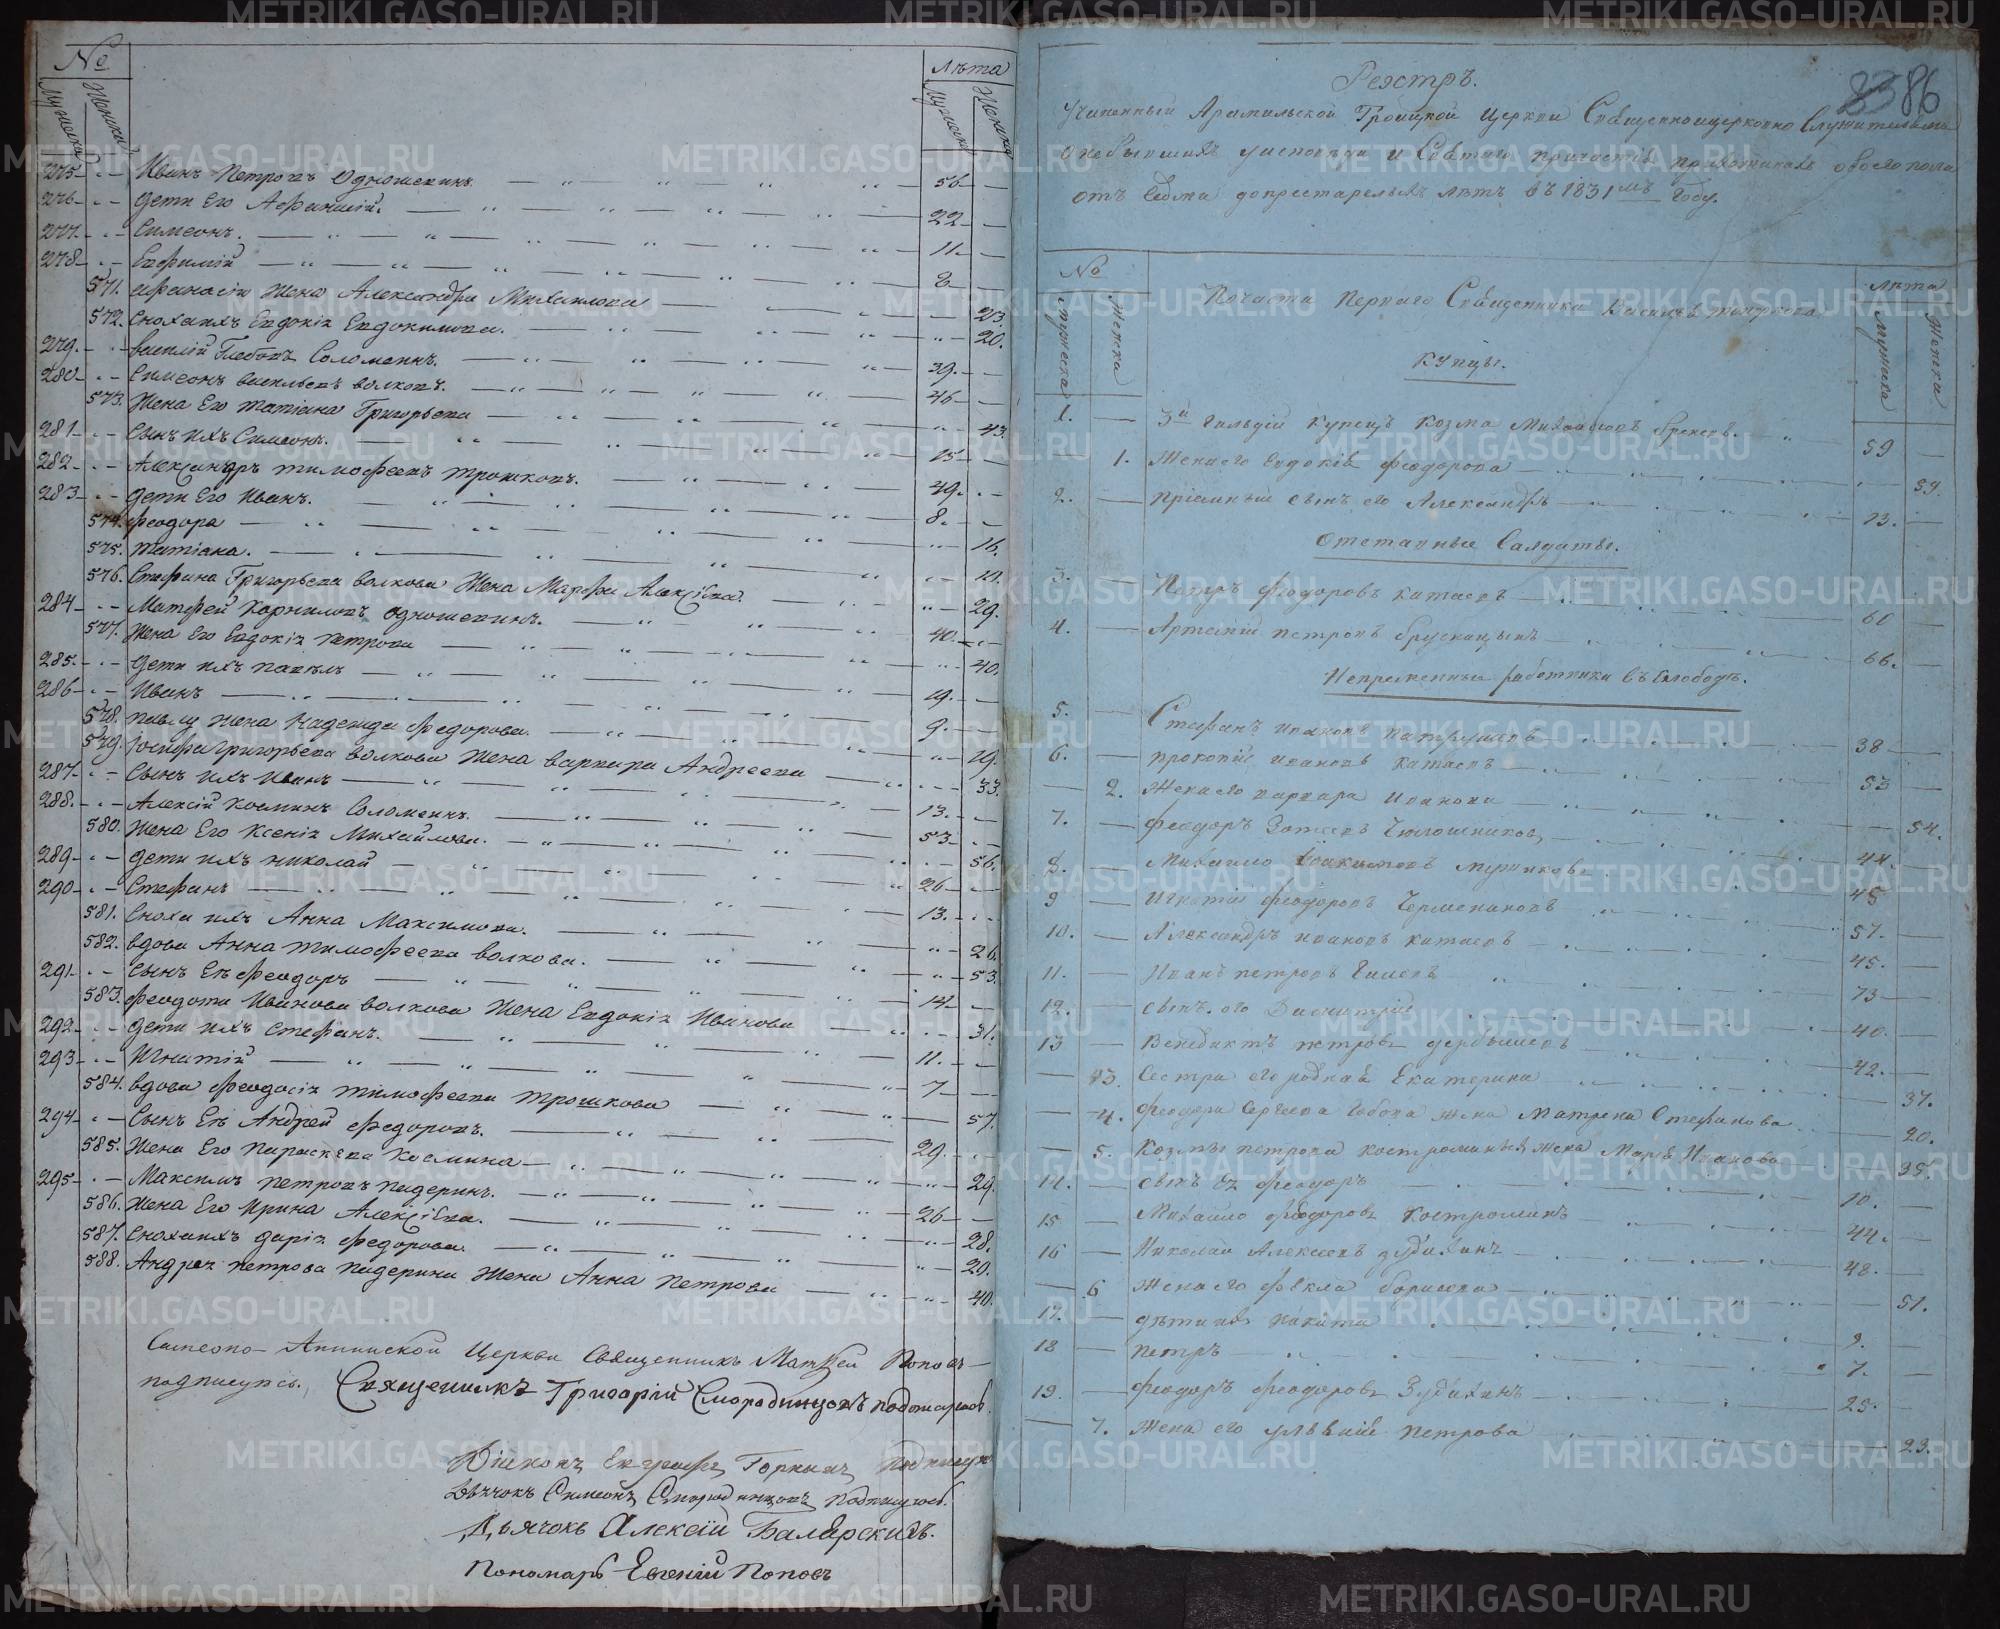 №
Мужеска
Женска
Лѣта
Мужеска
Женска
275 Иванъ Петровъ Одношевинъ. 56
276 дети Его Афанасій. 22
277 Симеонъ. 11
278 Евфимій 2
571. афанасія Жена Александра Михаилова 23.
572. Сноха ихъ Евдокія Евдокимова. 20.
279. василій Глебовъ Соломеинъ. 39.
280 Симеонъ васильевъ волковъ. 46
573. Жена Его Татіана Григорьева 43.
281 Сынъ ихъ Симеонъ. 15
282 Александръ тимофеевъ трошковъ. 49.
283 дети Его Иванъ. 8.
574. феодора 16.
575. татіана.
576. Стефана Григорьева волкова Жена Марфа Алексіева. 29.
284 Матфей Корниловъ одношевинъ. 40.
577. Жена Его Евдокія петрова 40.
285. дети ихъ павелъ 19.
286 Иванъ 9.
578. павлу жена Надежда федорова. 19.
579. Іосифа григорьева волкова Жена варвара Андреева 33.
287 Сынъ ихъ Иванъ 13.
288. Алексій Косминъ Соломеинъ. 53
580. Жена Его Ксенія Михайлова. 56.
289 дети ихъ николай 26
290 Стефанъ 13.
581. Сноха ихъ Анна Максимова. 26.
582. вдова Анна тимофеева волкова. 53.
291 Сынъ Ея феодоръ 14
583. феодота Иванова волкова Жена Евдокія Иванова 31.
292 дети ихъ стефанъ. 11.
293 Игнатій 7
584. вдова феодосія тимофеева трошкова 57.
294 Сынъ Ея Андрей федоровъ. 29.
585. Жена Его Параскева Космина 29.
295 Максимъ петровъ падеринъ. 26
586. Жена Его Ирина Алексіева. 28.
587. Сноха ихъ дарія федорова. 20.
588. Андрея петрова падерина Жена Анна петрова 40.
Симеоно-Аннинской Церкви Священникъ Матфей Поповъ
подписуюсь. Священникъ Григорій Смородинцовъ
Діаконъ Евграфъ
Дьячокъ Симеонъ Смородинцовъ подписуюсь.
Дьячокъ Алексій
Пономарь Евгеній Поповъ
83 86
Реэстръ.
Учиненный Арамильской Троицкой Церкви Священноицерковно Служительми
о небывшихъ у исповѣди и Святаго причастія прихожанахъ обоего пола
отъ Седми до престарелыхъ лѣтъ въ 1831мъ Году.
№
Мужеска
Женска
Лѣта
Мужска
Женска
По части перваго Священника
Купцы.
1. 3й гильдіи купецъ Козма Михаиловъ 59
1. Жена его Евдокія феодорова 59.
2. пріемный сынъ его Александръ 13.
Отставные Салдаты.
3. Петръ феодоровъ катаевъ 60
4. Артемій петровъ брусницынъ 66.
Непременные работники въ Слободѣ.
5. Стефанъ ивановъ патрушевъ 38
6. прокопій ивановъ катаевъ 53
2. Жена его варвара Иванова 54.
7. феодоръ Зотеевъ 44.
8. Михаило 45
9 Игнатій феодоровъ Чермениновъ 57.
10. Александръ ивановъ катаевъ 45.
11. Иванъ петровъ 73
12. сынъ его Димитрій 40.
13 Венедиктъ петровъ дербышевъ 42.
3. Сестра его родная Екатерина 37.
4. феодора Сергеева жена Матрена Стефанова 20.
5. Козмы петрова костромина жена Марья Иванова 35.
14. сынъ ея феодоръ 10.
15 Михаило феодоровъ костроминъ 44.
16 Николай Алексеевъ 48.
6 Жена его фекла борисова 51.
17. дѣти ихъ никита 9.
18 петръ 7.
19. феодоръ феодоровъ 25.
7. Жена его петрова 23.
METRIKI.GASO-URAL.RU